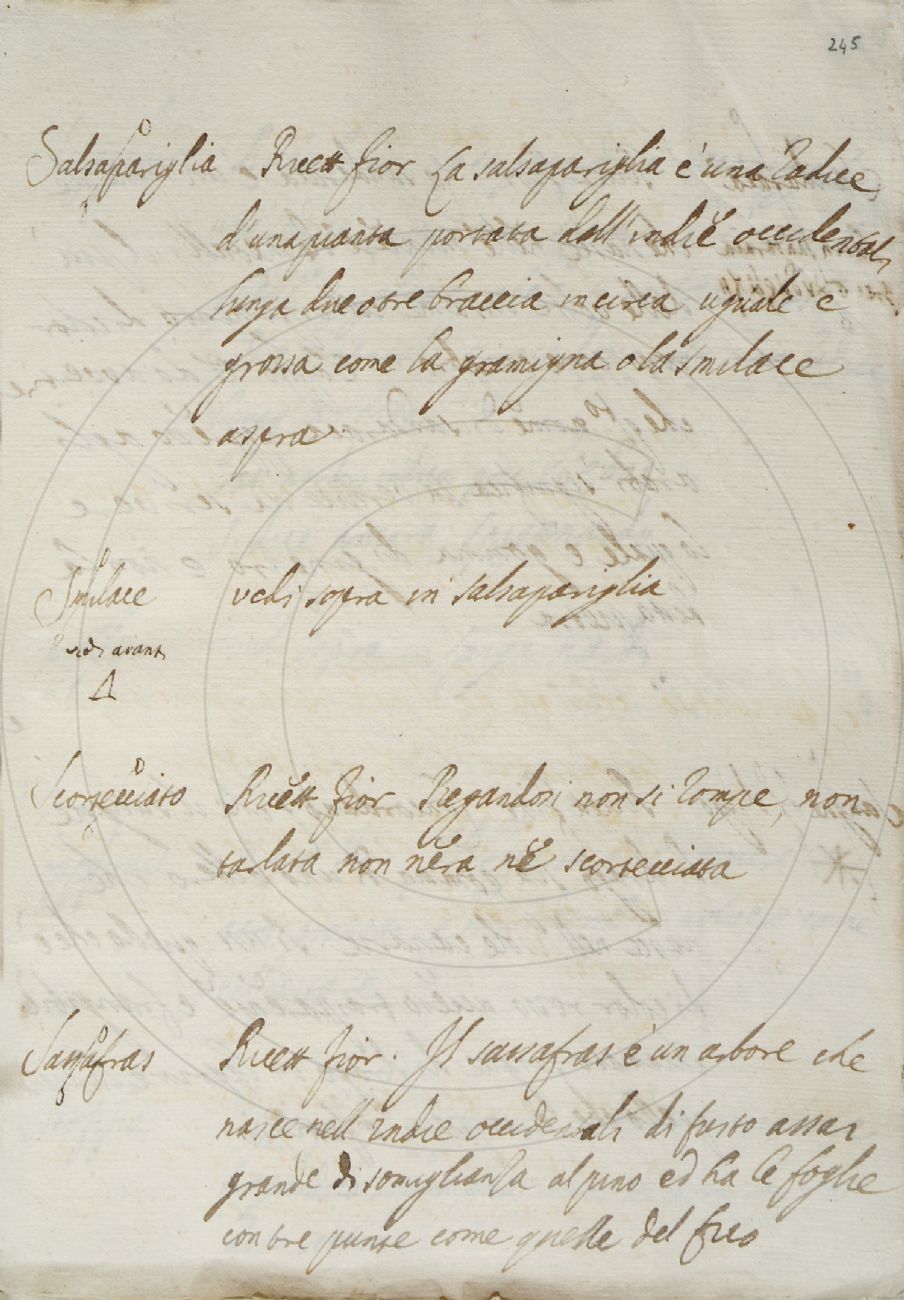 245
Salsapariglia Ricett Fior La salsapariglia è una radice
d'una pianta portata dall'indie occidentali
lunga due o tre braccia in circa uguale e
grossa come la gramigna o la smilace
aspra
Smilace vedi sopra in salsapariglia
vedi avanti
Scortecciato Ricett Fior Piegandosi non si rompe, non
tarlata non nera nè scortecciata
Sassafras Ricett Fior. Il sassafras è un arbore che
nasce nell'indie occidentali di fusto assai
grande di somiglianza al pino ed ha le foglie
con tre punte come quelle del fico